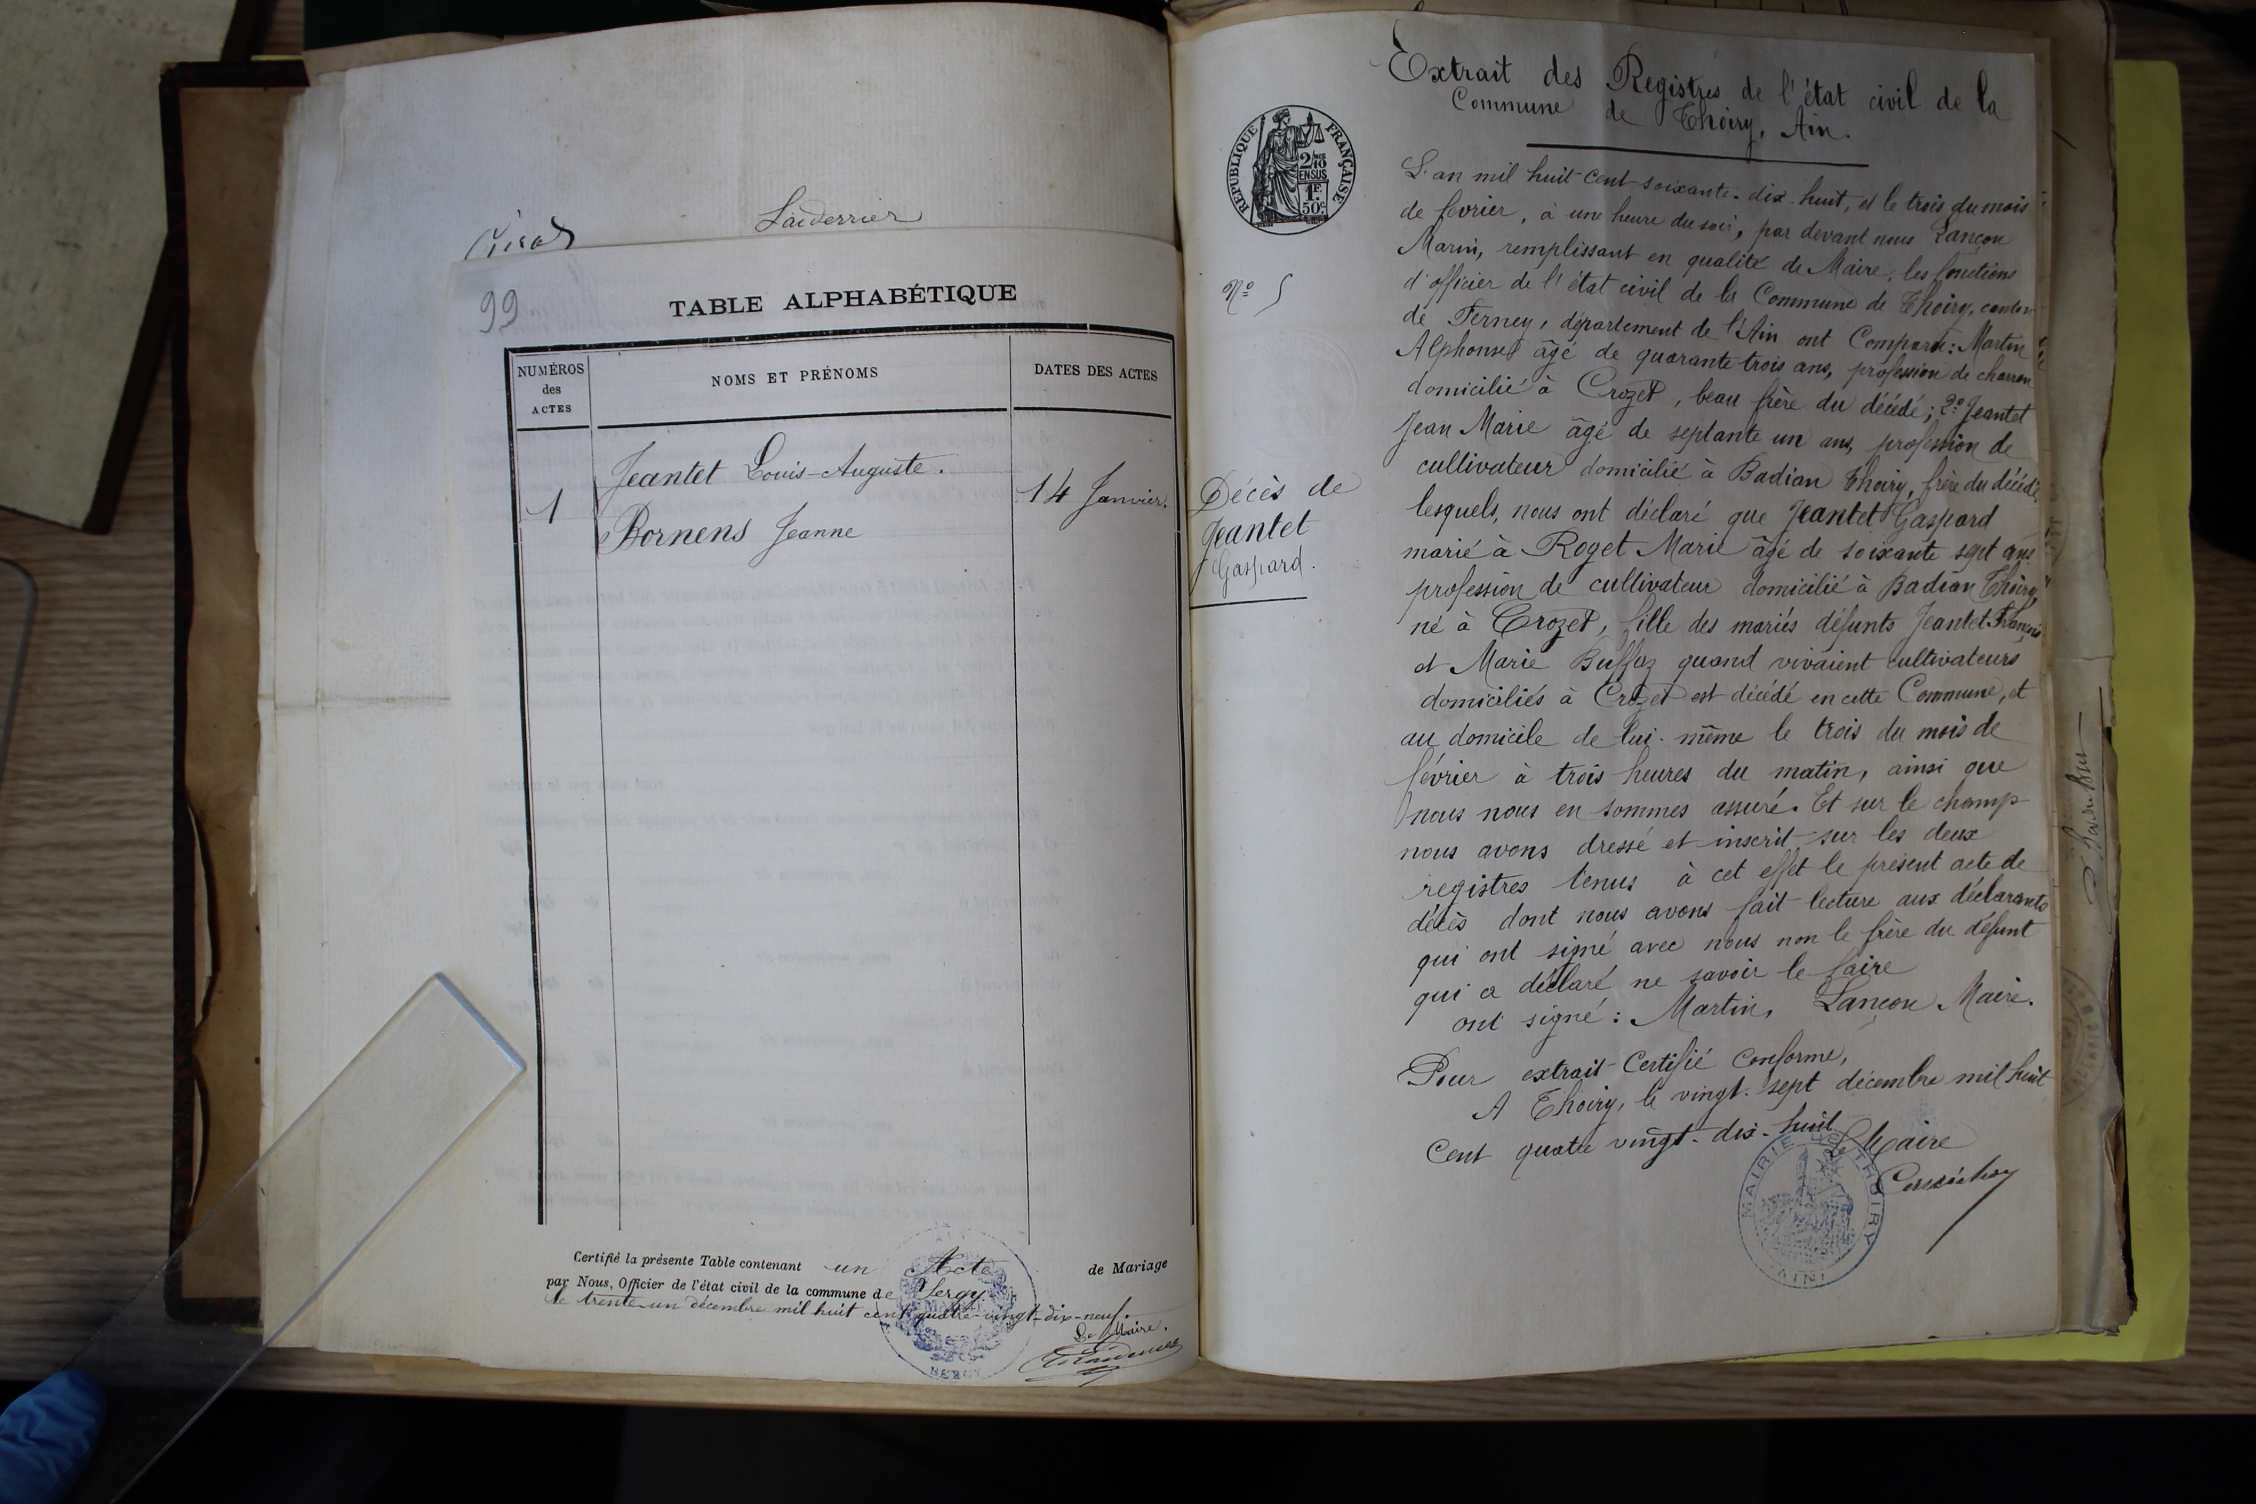 Laverrier
99
TABLE ALPHABÉTIQUE
NUMÉROS
des
ACTES
NOMS ET PRÉNOMS
DATES DES ACTES
Jeantet Louis-Auguste.
1
14 Janvier.
Bornens Jeanne
Certifié la présente Table contenant un Acte de Mariage
par Nous, Officier de l'état civil de la commune de Sergy.
le trente-un décembre mil huit cent quatre-vingt-dix-neuf.
Le Maire.
SERGY
Extrait des Registres de l'état civil de la
Commune de Thoiry, Ain.
RÉPUBLIQUE FRANÇAISE
2/10
EN SUS
1F.
50c
No 5
Décès de
Jeantet
Gaspard.
L'an mil huit cent soixante-dix-huit, et le trois du mois
de février, à une heure du soir, par devant nous Lançon
Marin, remplissant en qualité de Maire, les fonctions
d'officier de l'état civil de la Commune de Thoiry, canton
de Ferney, département de l'Ain ont Comparu: Martin
Alphonse âgé de quarante trois ans, profession de charron
domicilié à Crozet, beau frère du décédé; 2o Jeantet
Jean Marie âgé de septante un ans, profession de
cultivateur domicilié à Badian Thoiry, frère du décédé
lesquels, nous ont déclaré que Jeantet Gaspard
marié à Roget Marie âgé de soixante sept ans
profession de cultivateur domicilié à Badian Thoiry,
né à Crozet, fille des mariés défunts Jeantet François
et Marie Buffaz quand vivaient cultivateurs
domiciliés à Crozet est décédé en cette Commune, et
au domicile de lui-même le trois du mois de
février à trois heures du matin, ainsi que
nous nous en sommes assuré. Et sur le champ
nous avons dressé et inscrit sur les deux
registres tenus à cet effet le présent acte de
décès dont nous avons fait lecture aux déclarants
qui ont signé avec nous non le frère du défunt
qui a déclaré ne savoir le faire
ont signé: Martin, Lançon Maire.
Pour extrait Certifié Conforme,
A Thoiry, le vingt-sept décembre mil huit
Cent quatre vingt-dix-huit
Le Maire
MAIRIE DE THOIRY
(AIN)